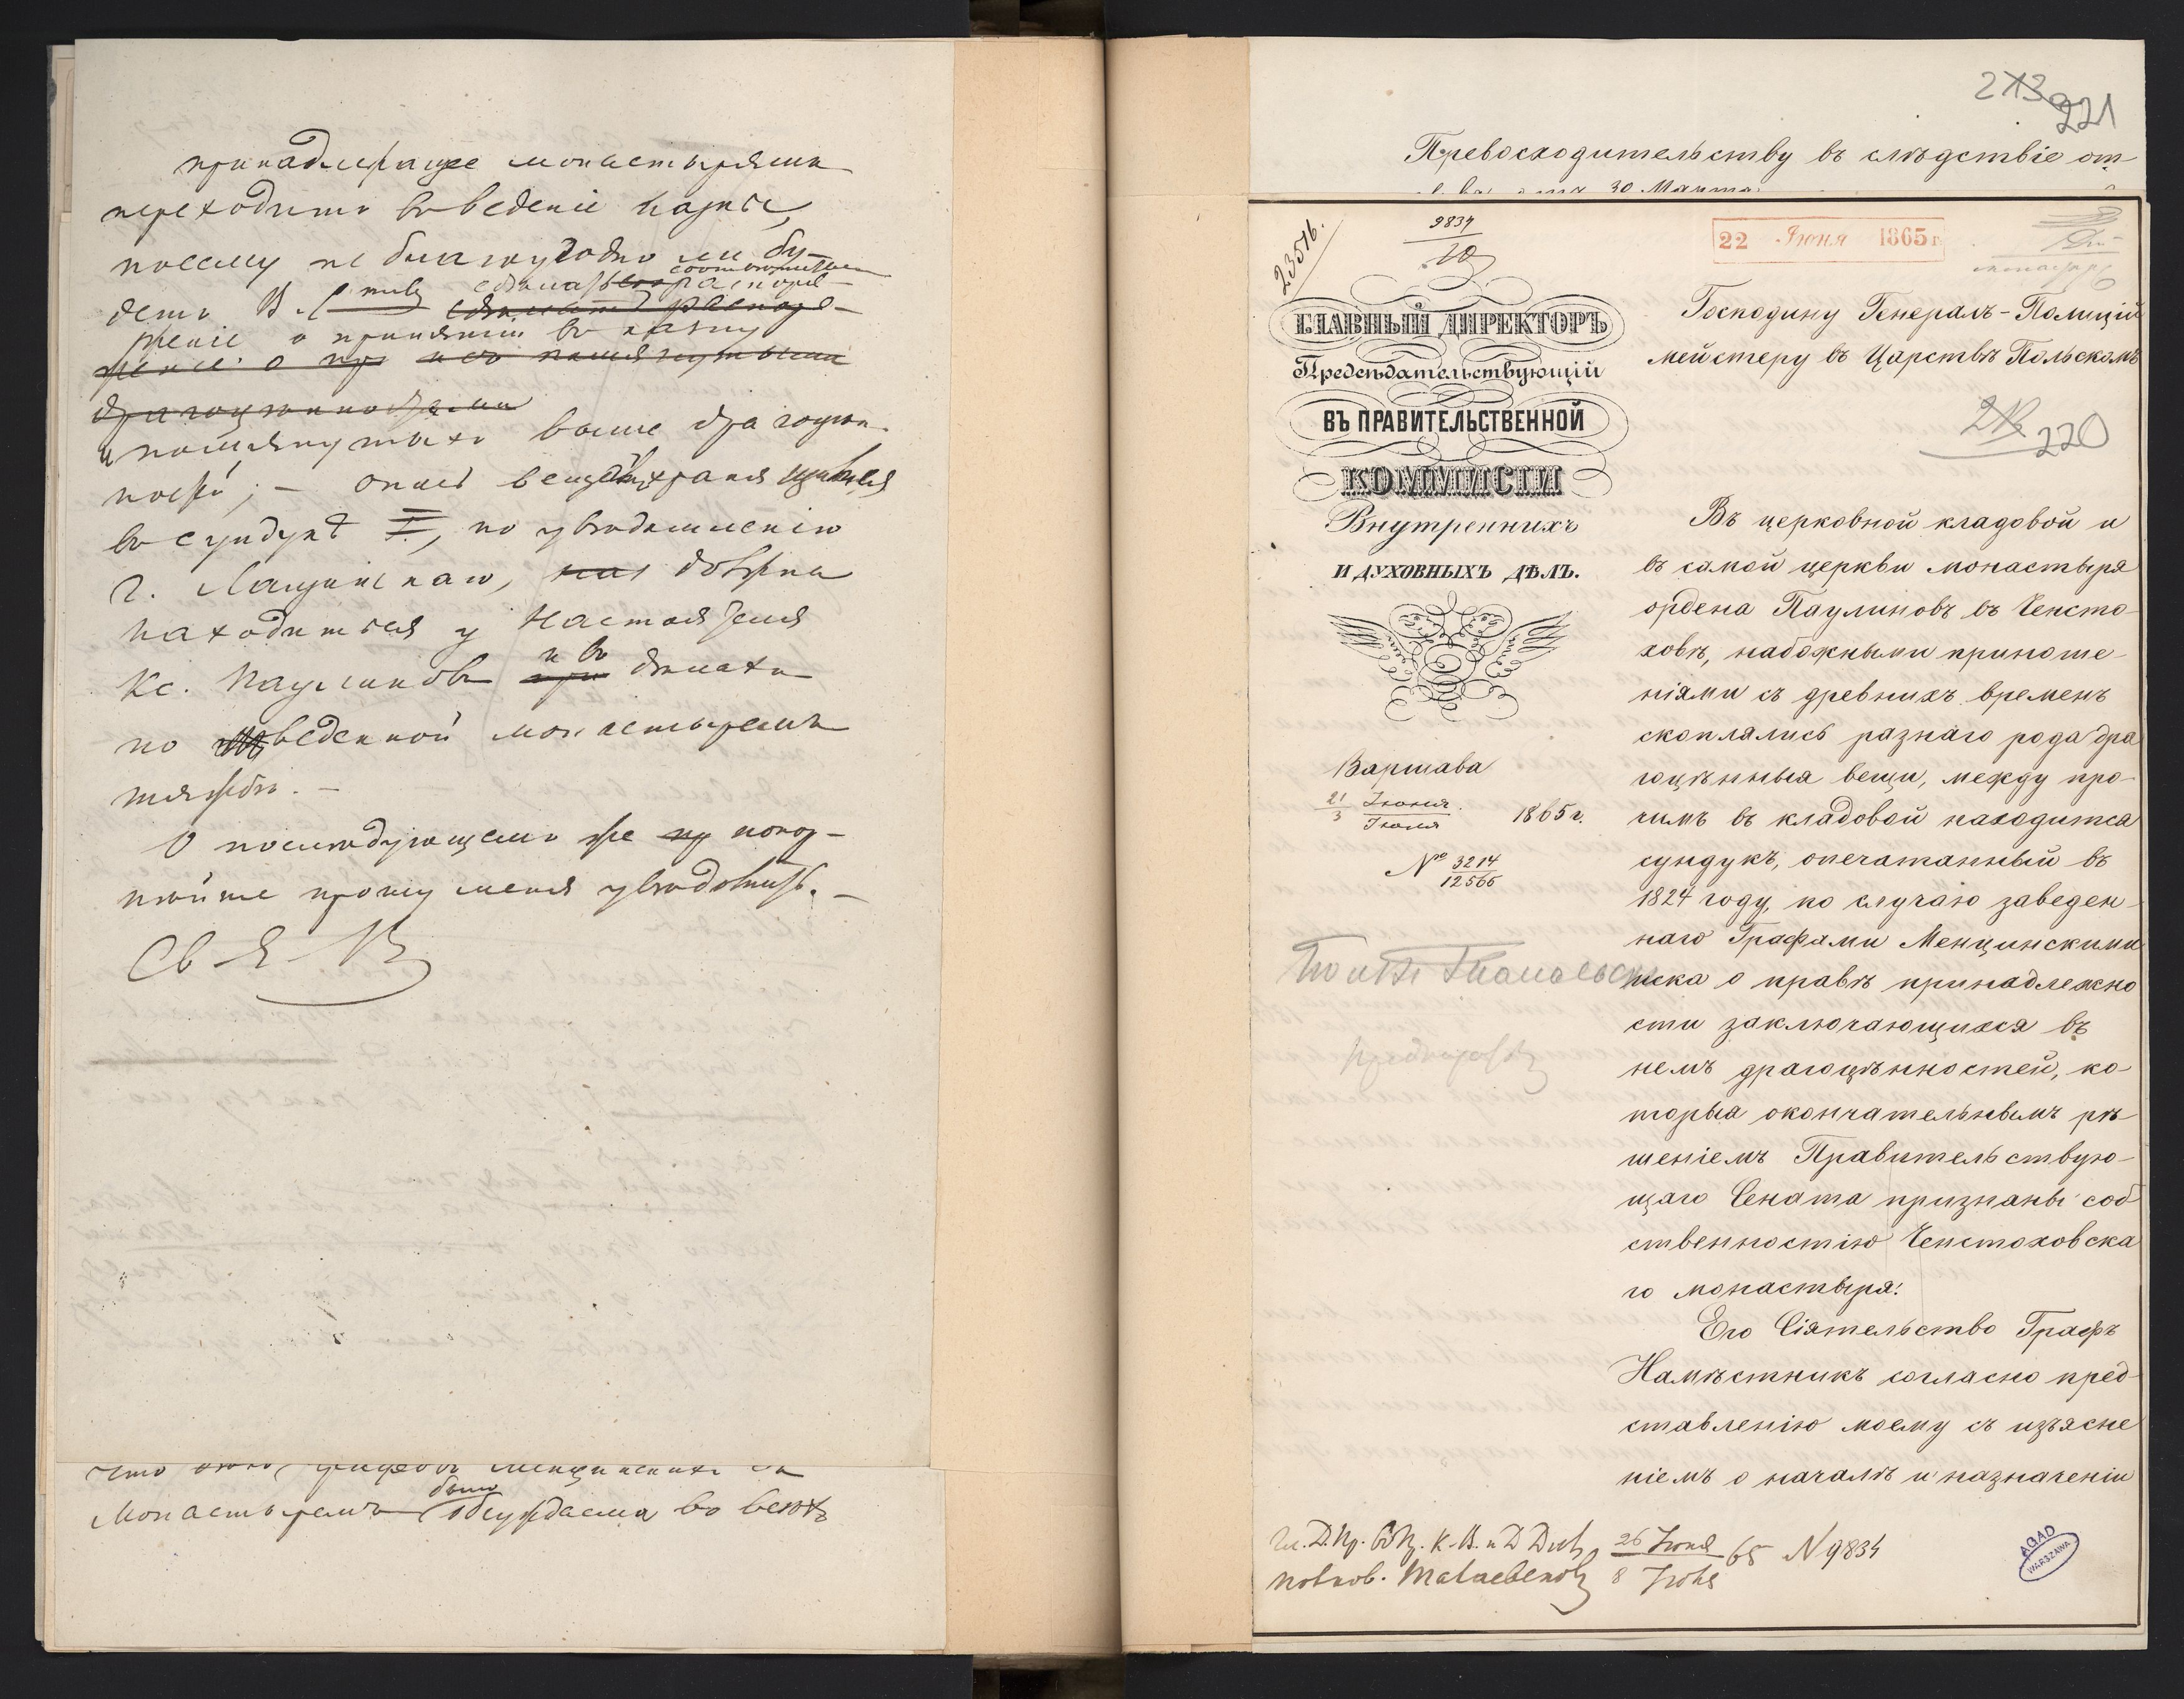 принадлежащее монастырямъ
переходитъ въ веденіе казны,
посему не благоугодно ли бу-
детъ В. С-тву сдѣлать соотвѣтствен
распоря-
женіе о принятіи въ казну
жение о пр
драгоцѣнностями
и помянутыхъ выше драгоцѣн-
ностей; – опись вещей хранящихся
въ сундукѣ I, по увѣдомленію
г. Лащинскаго, должна
находиться у Настоятеля
Кс. Паулиновъ и въ дѣлахъ
по веденной монастыремъ
тяжбѣ. –
О послѣдующемъ же покор-
нѣйше прошу меня увѣдомить. –
что
Монастыремъ было обсуждаема во всѣхъ
213 221
Превосходительству въ слѣдствіе от-
30 Марта
23516.
9834
22 Іюня 1865 г.
ГЛАВНЫЙ ДИРЕКТОРЪ
Предсѣдательствующій
ВЪ ПРАВИТЕЛЬСТВЕННОЙ
КОММИСІИ
Внутреннихъ
И ДУХОВНЫХЪ ДѢЛЪ.
Варшава
21/3 Іюня/Іюля 1865 г.
№ 3214/12566
Господину Генералъ-Полицій
мейстеру въ Царствѣ Польскомъ
220
Въ церковной кладовой и
въ самой церкви монастыря
ордена Паулиновъ въ Ченсто-
ховѣ, набожными приноше-
ніями съ древнихъ временъ
скоплялись разнаго рода дра
гоцѣнныя вещи, между про-
чимъ въ кладовой находится
сундукъ, опечатанный въ
1824 году, по случаю заведен-
наго Графами Менцинскими
иска о правѣ принадлежно
сти заключающихся въ
немъ драгоцѣнностей, ко-
торыя окончательнымъ рѣ-
шеніемъ Правительствую-
щаго Сената признаны соб
ственностію Ченстоховска
го монастыря.
Его Сіятельство Графъ
Намѣстникъ согласно пред-
ставленію моему съ изъясне
ніемъ о началѣ и назначеніи
Гл. Д. Пр. въ П. К. В. и Д Дѣлъ 26 Іюня/8 Іюля 65 N 9834
AGAD
WARSZAWA